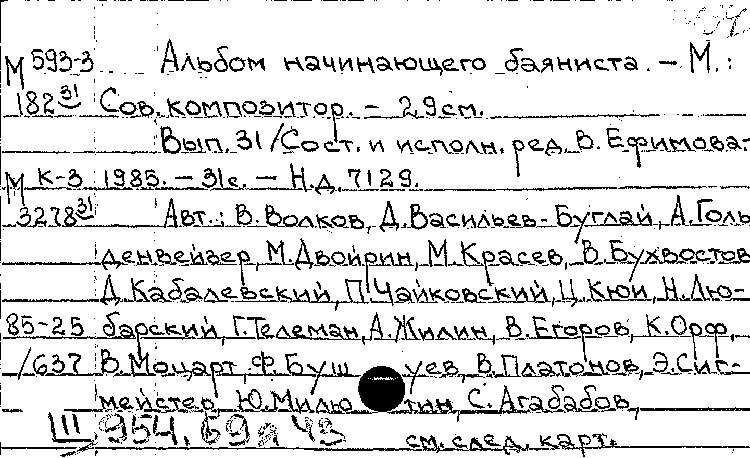 М 593-3 Альбом начинающего баяниста. – М.:
182 31 Сов. композитор. – 29см.
Вып. 31/Сост. и исполн. ред. В. Ефимова.-
М К-3 1985. – 31с. – Н.д. 7129.
3278 31 Авт.: В. Волков, Д. Васильев-Буглай, А. Голь
денвейзер, М. Двойрин, М. Красев, В. Бухвостов
Д. Кабалевский, П. Чайковский, Ц. Кюи, Н. Лю-
85-25 барский, Г. Телеман, А. Жилин, В. Егоров, К. Орф,
/637 В. Моцарт, Ф. Буш уев, В. Платонов, Э. Сиг-
мейстер, Ю. Милю тин, С. Агабабов,
III 954.69 я 43 см. след. карт.